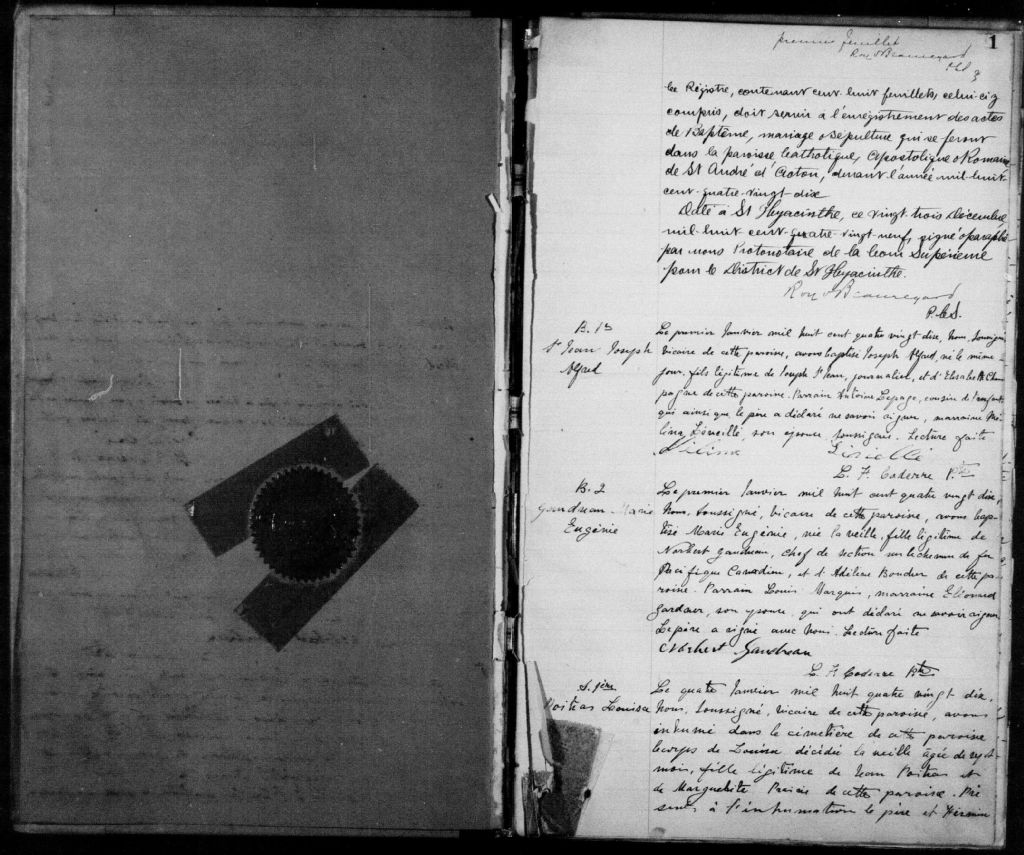 1
premier feuillet
Roy & Beauregard
Ce Régistre, contenant cent-huit feuillets, celui-ci y
compris, doit servir à l'enrégistrement des actes
de Baptême, mariage & sépulture qui se feront
dans la paroisse Catholique, Apostolique & Romaine
de St André d'Acton, durant l'année mil-huit-
cent-quatre-vingt-dix
Daté à St Hyacinthe, ce vingt-trois Décembre
mil-huit-cent-quatre-vingt-neuf, signé & paraphé
par nous Protonotaire de la Cour Supérieure
pour le District de St Hyacinthe.
Roy & Beauregard
P.C.S.
B. 1
St Jean Joseph
Alfred
Le premier Janvier mil huit cent quatre vingt dix, Nous, soussigné
Vicaire de cette paroisse, avons baptisé Joseph Alfred, né le même
jour, fils légitime de Joseph St Jean, journalier, et d'Elisabeth Cham
pagne de cette paroisse. Parrain Antoine Lepage, cousin de l'enfant,
qui ainsi que le père a déclaré ne savoir signer, marraine Mé-
lina Léveillé son épouse soussignée. Lecture faite
L. F. Coderre Ptre
B. 2
Gaudreau Marie
Eugénie
Le premier Janvier mil huit cent quatre vingt dix,
Nous, soussigné, vicaire de cette paroisse, avons bap-
tisé Marie Eugénie, née la veille, fille légitime de
Norbert Gaudreau, chef de section sur le chemin de fer
Pacifique Canadien, et d'Adéline Boucher de cette pa-
roisse. Parrain Louis Marquis, marraine
Gardner, son épouse, qui ont déclaré ne savoir signer.
Le père a signé avec Nous. Lecture faite
Norbert Gaudreau
L. F. Coderre Ptre
S. 1ère
Poitras Louisa
Le quatre Janvier mil huit quatre vingt dix,
Nous, soussigné, vicaire de cette paroisse, avons
inhumé dans le cimetière de cette paroisse
le corps de Louisa décédée la veille âgée de
mois, fille légitime de Jean Poitras et
de Marguerite de cette paroisse. Pré
sents à l'inhumation le père et